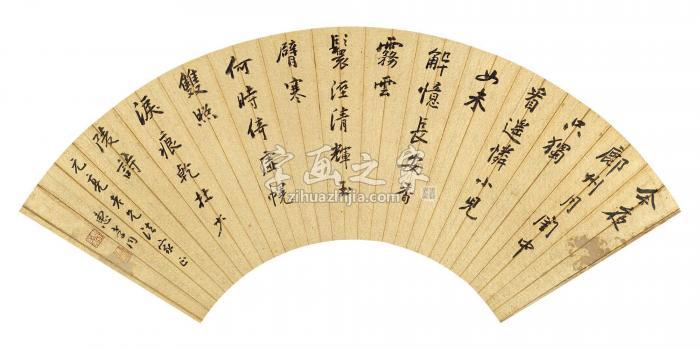 今夜
鄜州月閨中
只獨
看遙憐小兒
女未
解憶長安香
霧雲
鬟溼清輝玉
臂寒
何時倚虛幌
雙照
淚痕乾杜少
陵詩
元亮兄法家正
惠孝同
字画之家
zihuazhijia.com